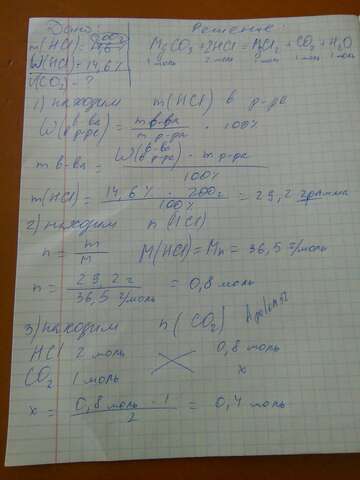 Дано:
m(HCl) = 200г
W(HCl) = 14,6%
V(CO2) - ?
Решение:
MgCO3 + 2HCl = MgCl2 + CO2 + H2O
1 моль 2 моль 1 моль 1 моль 1 моль
1) находим m(HCl) в р-ре
W(в-ва в р-ре) = m в-ва / m р-ра · 100%
m в-ва = W(в-ва в р-ре) · m р-ра / 100%
m(HCl) = 14,6% · 200г / 100% = 29,2 грамма
2) находим n(HCl)
n = m / M M(HCl) = Mr = 36,5 г/моль
n = 29,2 г / 36,5 г/моль = 0,8 моль
3) находим n(CO2)
HCl 2 моль 0,8 моль
CO2 1 моль x
x = 0,8 моль · 1 / 2 = 0,4 моль